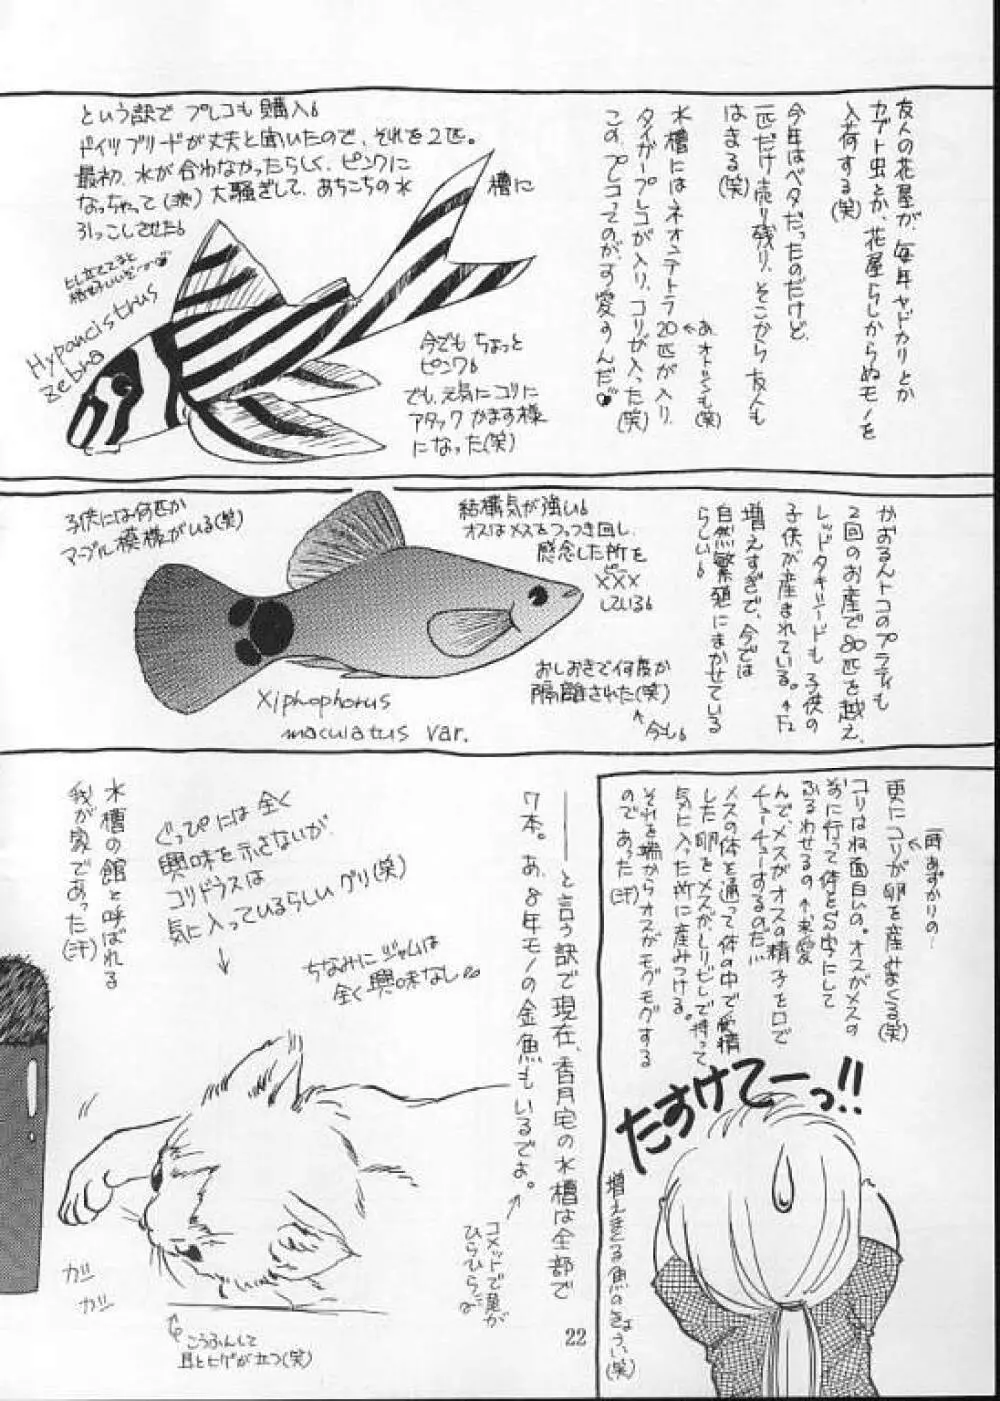 友人の花屋が、毎年ヤドカリとか
カブト虫とか、花屋らしからぬモノを
入荷する(笑)
今年はベタだったのだけど、
一匹だけ売り残り、そこから友人も
はまる(笑)
水槽にはネオンテトラ20匹が入り、
あ、オトシンも(笑)
タイガープレコが入り、コリが入った(笑)
この、プレコってのが、可愛いんだ♥
という訳で プレコも購入。
ドイツブリードが丈夫と聞いたので、それを2匹。
最初、水が合わなかったらしく、ピンクに
なっちゃって(涙) 大騒ぎして、あちこちの水槽に
引っこしさせた。
ヒレ立ててると
Hypancistrus
zebra
今でも ちょっと
ピンク。
でも、元気にコリに
アタック かます様
になった(笑)
かおるんトコのプラティも
2回のお産で80匹を越え、
レッドタキシードも子供の
子供が産まれている。←F2
増えすぎで、今では
自然繁殖にまかせている
らしい。
結構気が強い。
オスはメスをつっつき回し、
懸念した所を
ピー
×××
している。
おしおきで何度か
隔離された(笑)
↑今も。
子供には何匹か
マーブル模様がいる(笑)
Xiphophorus
maculatus var.
更にコリが卵を産みまくる(笑)
一時あずかりの…
コリはね面白いの。オスがメスの
前に行って体をS字にして
ふるわせるの←求愛
んで、メスがオスの精子を口で
チューチューするのだ…
メスの体を通って体の中で受精
した卵をメスが、ヒレで持って
気に入った所に産みつける。
それを端からオスがモグモグする
のであった(汗)
たすけてーっ!!
増えまくる魚のきょうい(笑)
――と言う訳で現在、香月宅の水槽は全部で
7本。あ、8年モノの金魚もいるでよ。
コメットで尾が
ひらひらだ
ぐっぴには全く
興味を示さないが、
コリドラスは
気に入っているらしいグリ(笑)
ちなみにジャムは
全く興味なし
水槽の館と呼ばれる
我が家であった(汗)
ガリ
ガリ
こうふんして
耳とヒゲが立つ(笑)
22